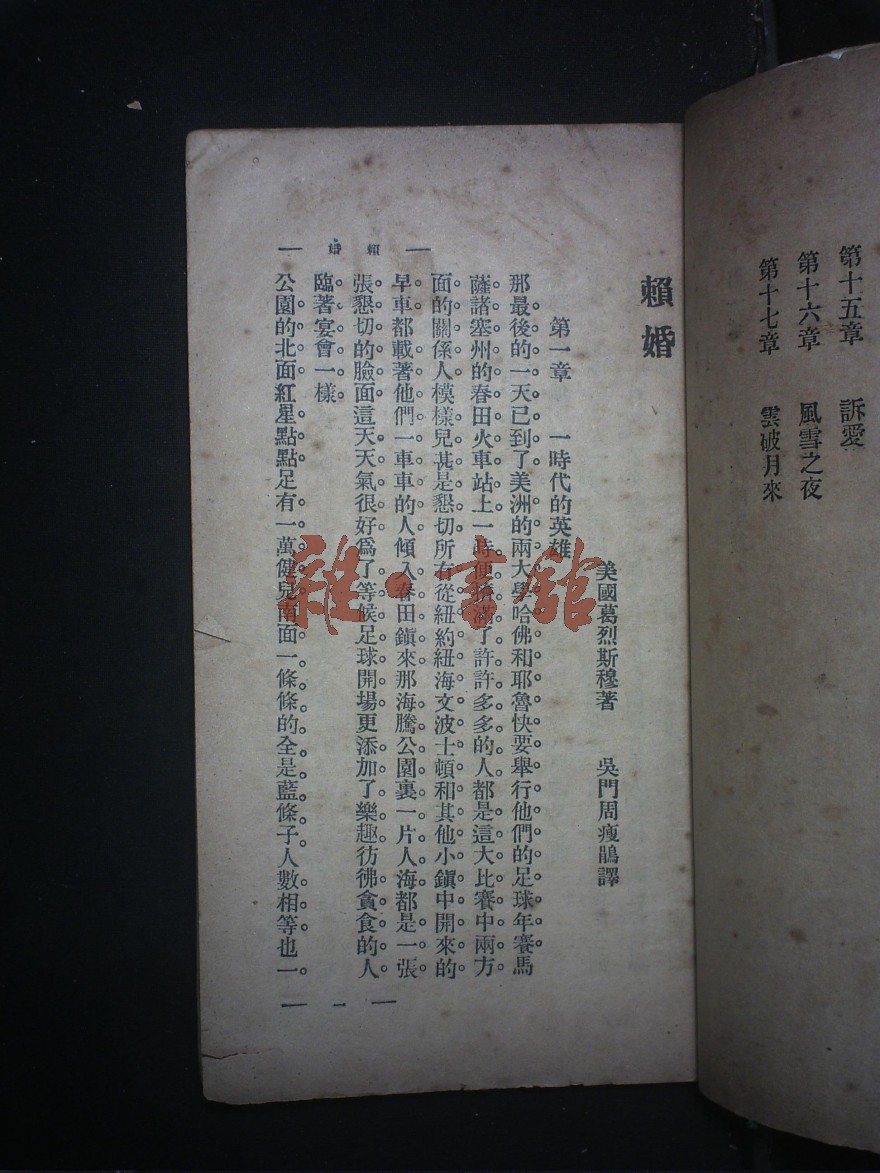 第十五章 訴愛
第十六章 風雪之夜
第十七章 雲破月來
賴婚
美國葛烈斯穆著 吳門周瘦鵑譯
第一章 一時代的英雄
那最後的一天已到了美洲的兩大學哈佛和耶魯快要舉行他們的足球年賽馬
薩諸塞州的春田火車站上一時便擠滿了許許多多的人都是這大比賽中兩方
面的關係人模樣兒甚是懇切所有從紐約紐海文波士頓和其他小鎮中開來的
早車都載著他們一車車的人傾入春田鎮來那海騰公園裏一片人海都是一張
張懇切的臉面這天天氣很好爲了等候足球開場更添加了樂趣彷彿貪食的人
臨著宴會一樣
公園的北面紅星點點足有一萬健兒南面一條條的全是藍條子人數相等也一
賴婚
一
雜·書館